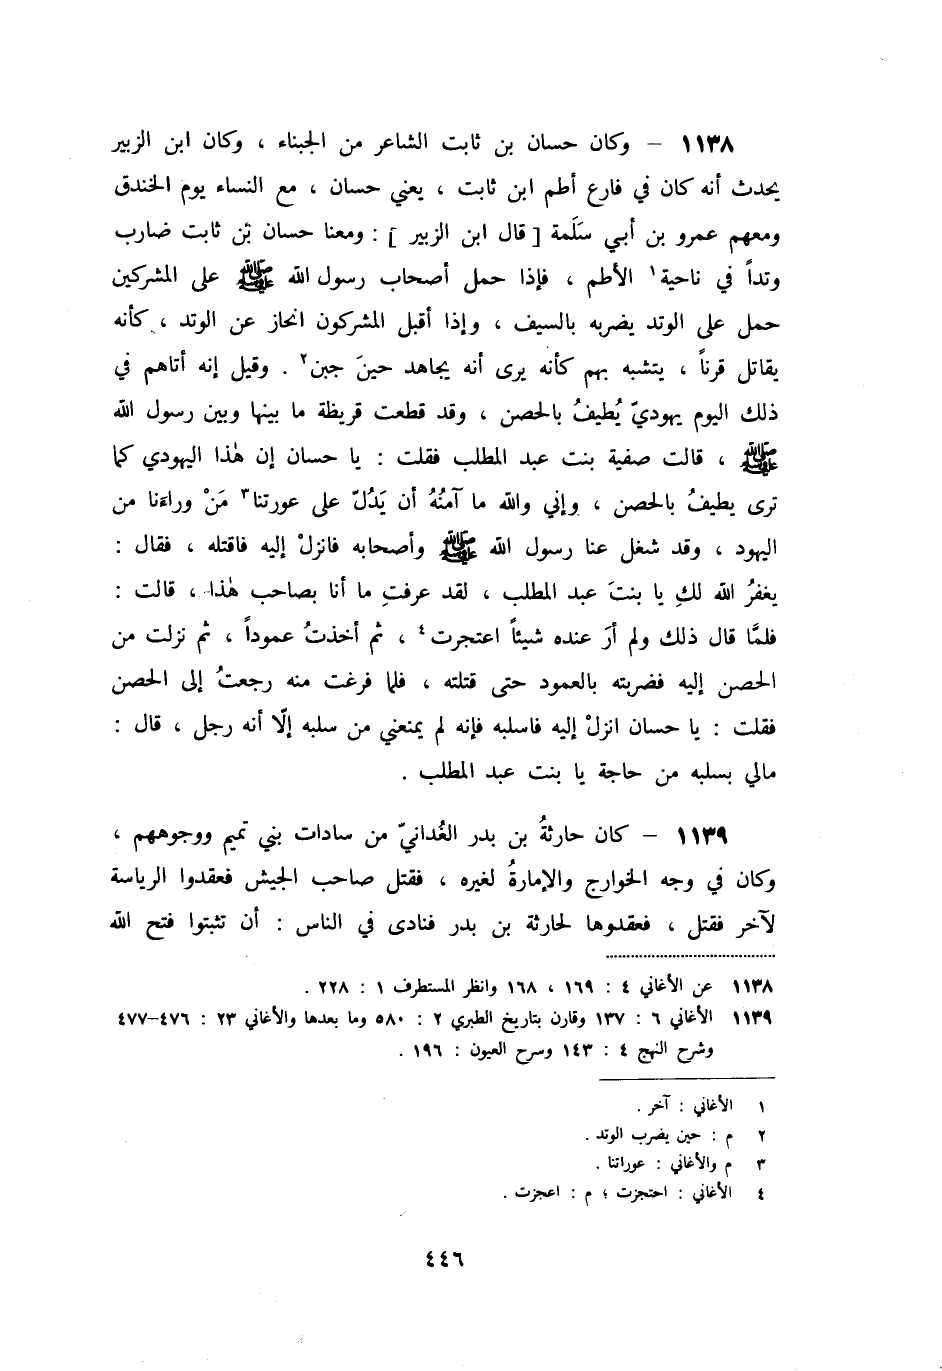 ١١٣٨ – وكان حسان بن ثابت الشاعر من الجبناء ، وكان ابن الزبير
يحدث أنه كان في فارع أطم ابن ثابت ، يعني حسان ، مع النساء يوم الخندق
ومعهم عمرو بن أبي سَلَمة [ قال ابن الزبير ] : ومعنا حسان بْن ثابت ضارب
وتداً في ناحية١ الأطم ، فإذا حمل أصحاب رسول الله ﷺ على المشركين
حمل على الوتد يضربه بالسيف ، وإذا أقبل المشركون انحاز عن الوتد ، كأنه
يقاتل قرناً ، يتشبه بهم كأنه يرى أنه يجاهد حينَ جبن٢ . وقيل إنه أتاهم في
ذلك اليوم يهوديّ يُطيفُ بالحصن ، وقد قطعت قريظة ما بينها وبين رسول الله
ﷺ ، قالت صفية بنت عبد المطلب فقلت : يا حسان إن هٰذا اليهودي كما
ترى يطيفُ بالحصن ، وإني والله ما آمنُهُ أن يَدُلّ على عورتنا٣ مَنْ وراءَنا من
اليهود ، وقد شغل عنا رسول الله ﷺ وأصحابه فانزلْ إليه فاقتله ، فقال :
يغفرُ الله لكِ يا بنتَ عبد المطلب ، لقد عرفتِ ما أنا بصاحب هٰذا ، قالت :
فلمَّا قال ذلك ولم أرَ عنده شيئاً اعتجرت٤ ، ثم أخذتُ عموداً ، ثم نزلت من
الحصن إليه فضربته بالعمود حتى قتلته ، فلما فرغت منه رجعتُ إلى الحصن
فقلت : يا حسان انزلْ إليه فاسلبه فإنه لم يمنعني من سلبه إلّا أنه رجل ، قال :
مالي بسلبه من حاجة يا بنت عبد المطلب .
١١٣٩ – كان حارثةُ بن بدر الغُدانيّ من سادات بني تميم ووجوههم ،
وكان في وجه الخوارج والإمارةُ لغيره ، فقتل صاحب الجيش فعقدوا الرياسة
لآخر فقتل ، فعقدوها لحارثة بن بدر فنادى في الناس : أن تثبتوا فتح الله
١١٣٨ عن الأغاني ٤ : ١٦٩ ، ١٦٨ وانظر المستطرف ١ : ٢٢٨ .
١١٣٩ الأغاني ٦ : ١٣٧ وقارن بتاريخ الطبري ٢ : ٥٨٠ وما بعدها والأغاني ٢٣ : ٤٧٦–٤٧٧
وشرح النهج ٤ : ١٤٣ وسرح العيون : ١٩٦ .
١ الأغاني : آخر .
٢ م : حين يضرب الوتد .
٣ م والأغاني : عوراتنا .
٤ الأغاني : احتجزت ؛ م : اعجزت .
٤٤٦